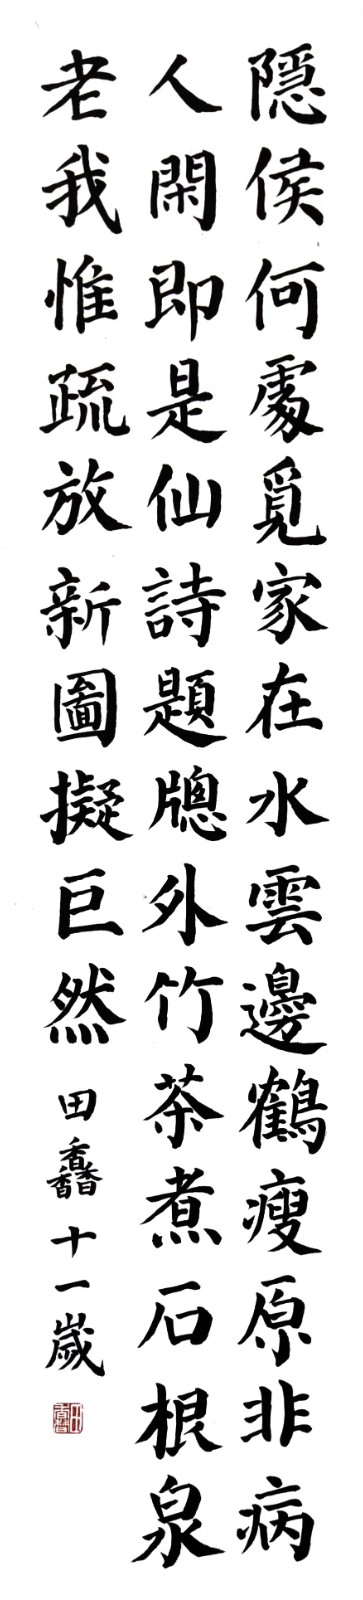 隱侯何處覓家在水雲邊鶴瘦原非病
人閑即是仙詩題牕外竹茶煮石根泉
老我惟疏放新圖擬巨然 田馫十一歲